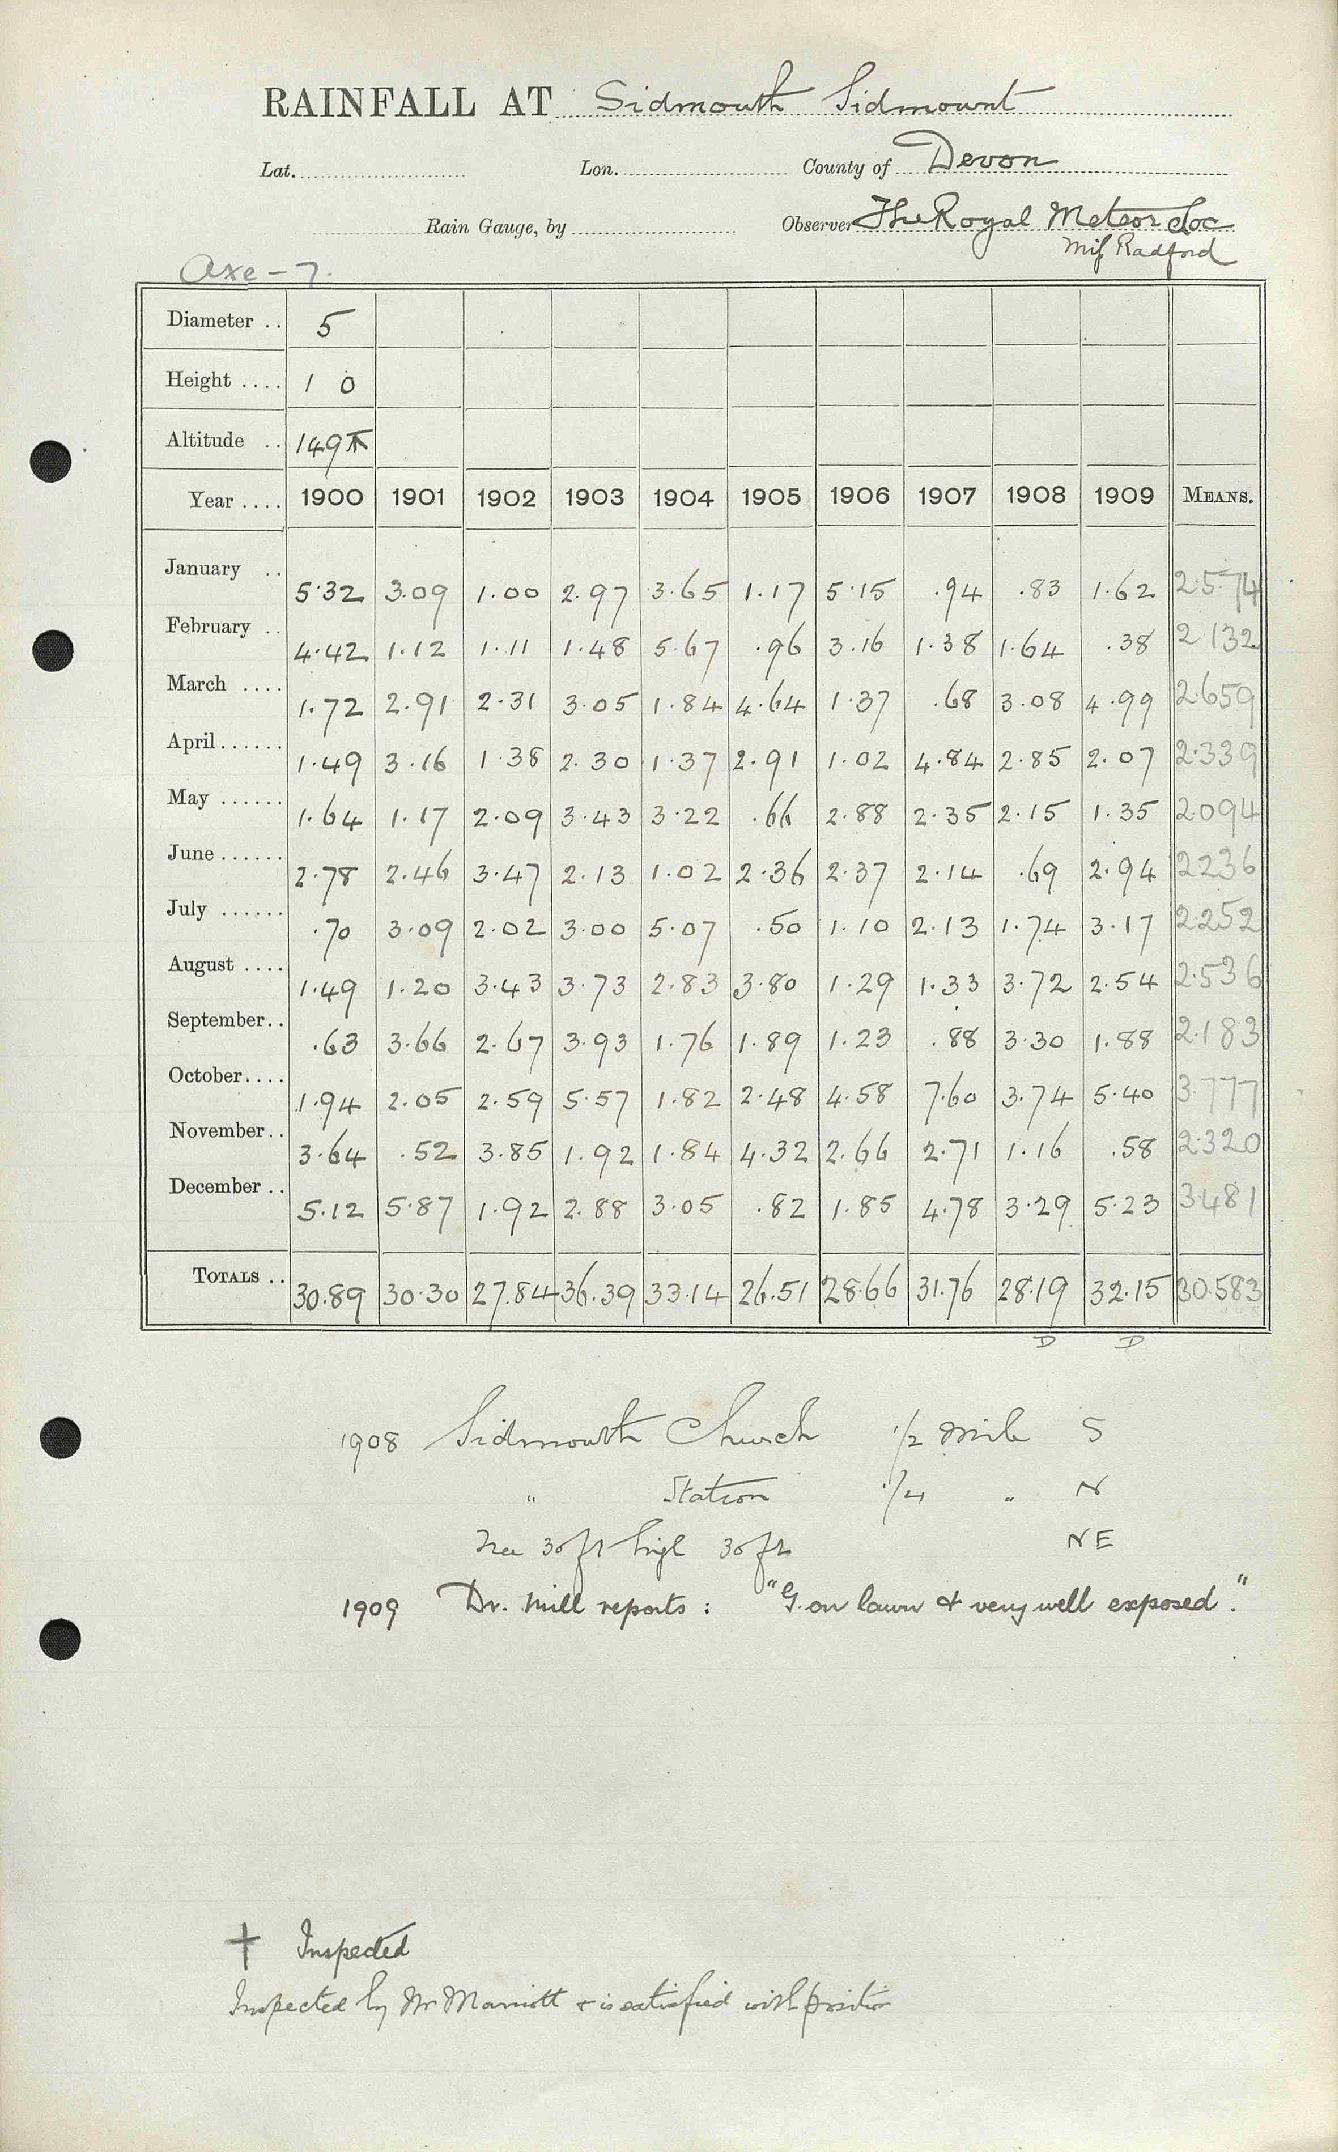 RAINFALL AT Sidmouth Sidmount
Lat. Lon. County of Devon
Rain Gauge, by Observer The Royal Meteor Soc
Miss Radford
Axe - 7.
Diameter .. 5
Height .... 1 0
Altitude .. 149
Year .... 1900 1901 1902 1903 1904 1905 1906 1907 1908 1909 MEANS.
January .. 5.32 3.09 1.00 2.97 3.65 1.17 5.15 .94 .83 1.62 2.574
February .. 4.42 1.12 1.11 1.48 5.67 .96 3.16 1.38 1.64 .38 2.132
March .... 1.72 2.91 2.31 3.05 1.84 4.64 1.37 .68 3.08 4.99 2.659
April...... 1.49 3.16 1.38 2.30 1.37 2.91 1.02 4.84 2.85 2.07 2.339
May ...... 1.64 1.17 2.09 3.43 3.22 .66 2.88 2.35 2.15 1.35 2.094
June...... 2.78 2.46 3.47 2.13 1.02 2.36 2.37 2.14 .69 2.94 2236
July ...... .70 3.09 2.02 3.00 5.07 .50 1.10 2.13 1.74 3.17 2.252
August .... 1.49 1.20 3.43 3.73 2.83 3.80 1.29 1.33 3.72 2.54 2.536
September.. .63 3.66 2.67 3.93 1.76 1.89 1.23 .88 3.30 1.88 2.183
October.... 1.94 2.05 2.59 5.57 1.82 2.48 4.58 7.60 3.74 5.40 3.777
November.. 3.64 .52 3.85 1.92 1.84 4.32 2.66 2.71 1.16 .58 2.320
December .. 5.12 5.87 1.92 2.88 3.05 .82 1.85 4.78 3.29 5.23 3.481
TOTALS .. 30.89 30.30 27.84 36.39 33.14 26.51 28.66 31.76 28.19 32.15 30.583
D D
1908 Sidmouth Church 1/2 mile S
" Station 1/4 " N
Tree 30 ft high 30 ft NE
1909 Dr. Mill reports : "G. on lawn & very well exposed."
† Inspected
Inspected by Mr Marriott & is satisfied with position